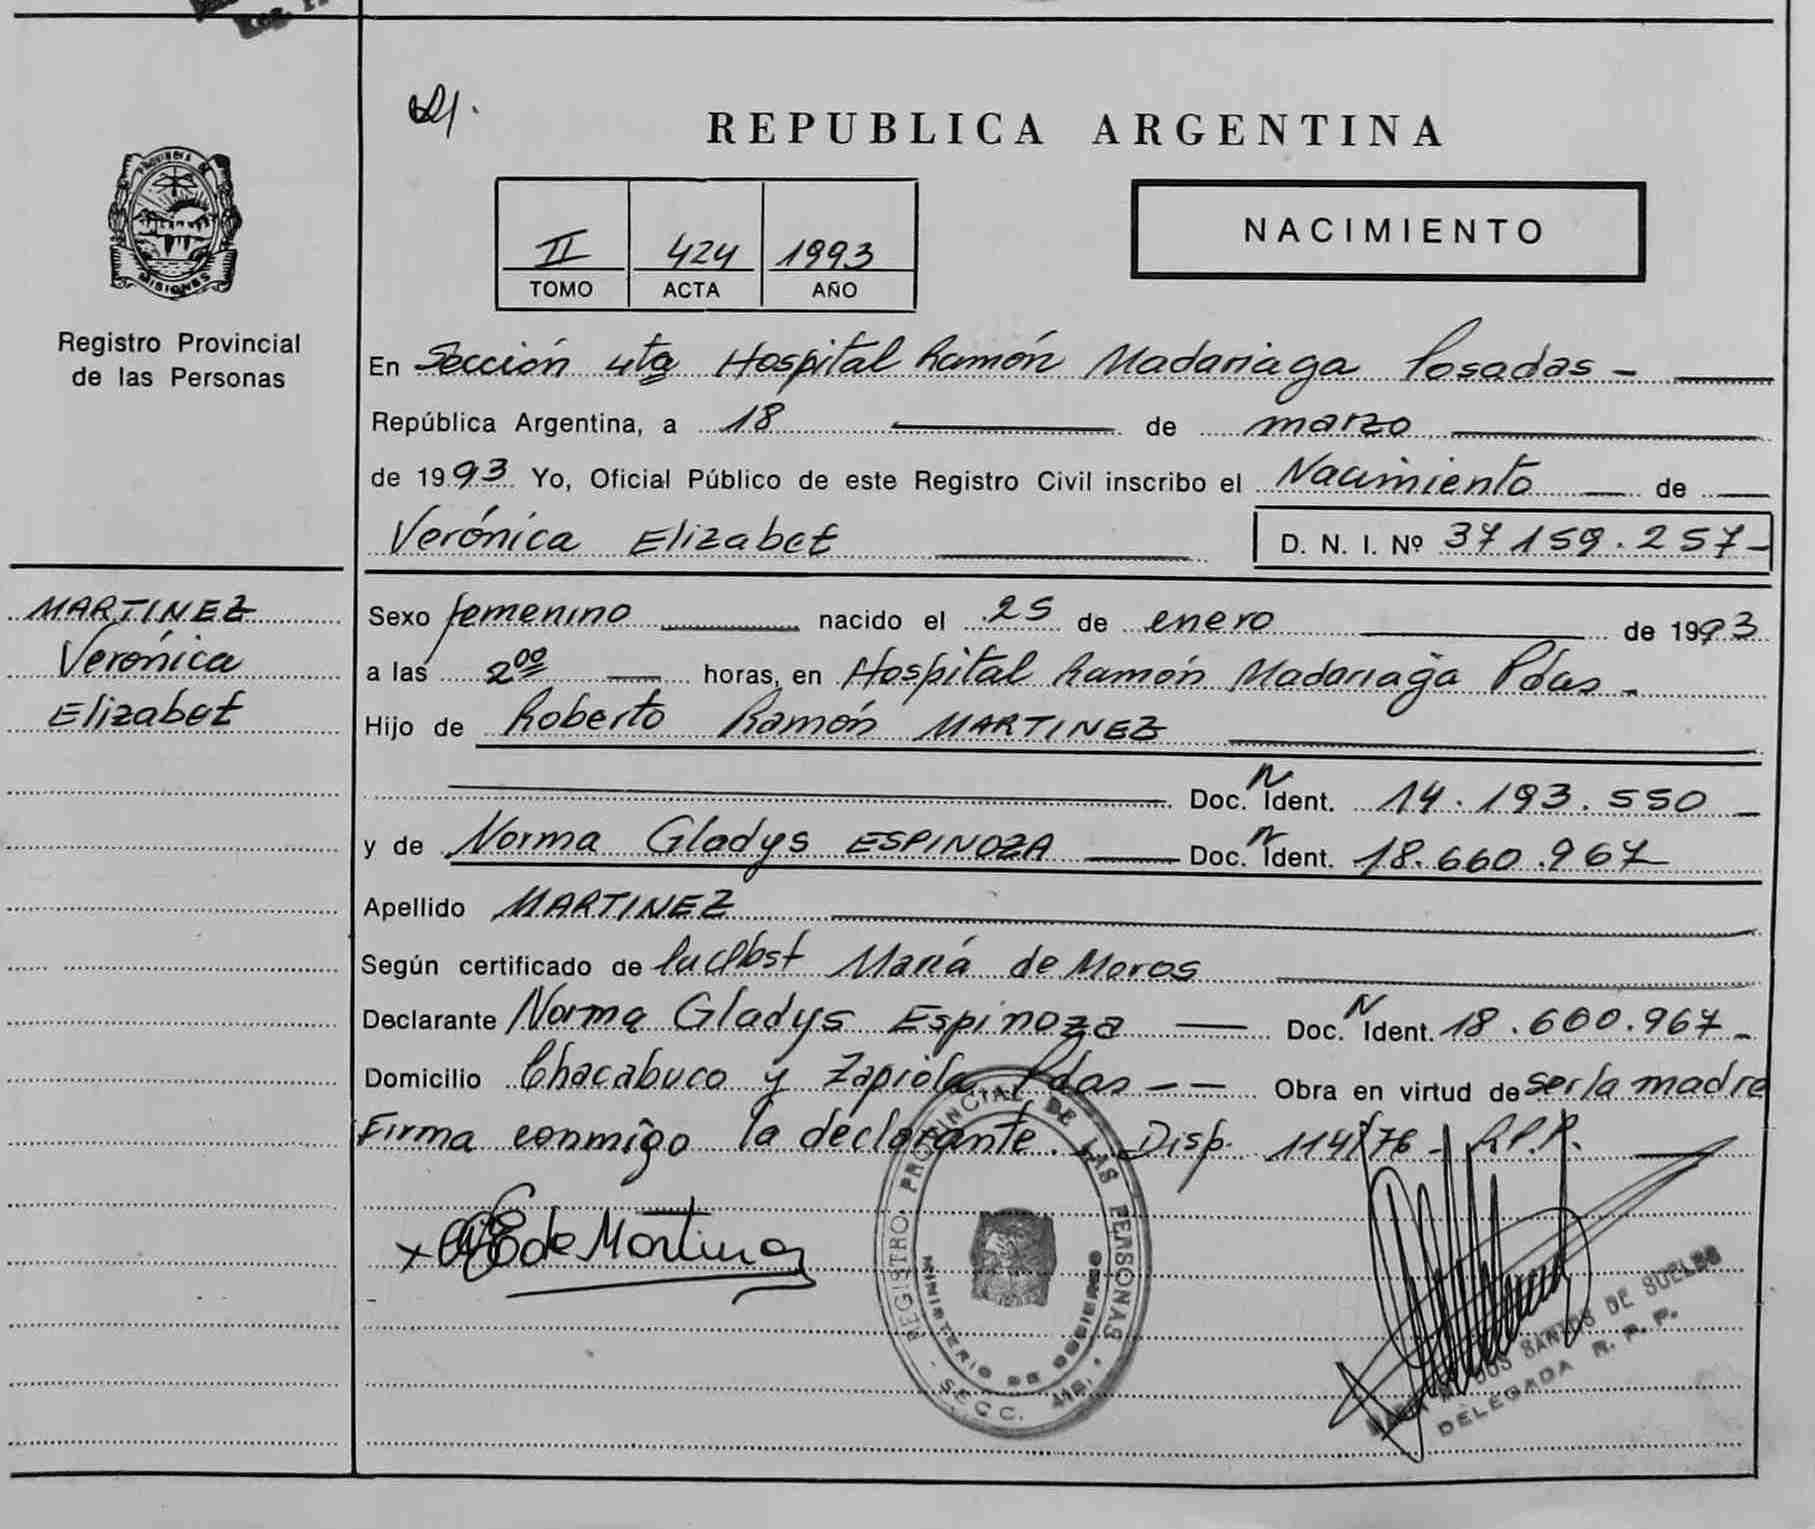 REPUBLICA ARGENTINA
II 424 1993
TOMO ACTA AÑO
NACIMIENTO
PROVINCIA DE
MISIONES
Registro Provincial
de las Personas
En Sección 4ta Hospital Ramón Madariaga Posadas -
República Argentina, a 18 de marzo
de 1993 Yo, Oficial Público de este Registro Civil inscribo el Nacimiento de
Verónica Elizabet D. N. I. Nº 37 159.257-
MARTINEZ
Verónica
Elizabet
Sexo femenino nacido el 25 de enero de 1993
a las 2 00 horas, en Hospital Ramón Madariaga Pdas -
Hijo de Roberto Ramón MARTINEZ
Doc. N Ident. 14.193.550
y de Norma Gladys ESPINOZA Doc. N Ident. 18.660.967
Apellido MARTINEZ
Según certificado de María de Moros
Declarante Norma Gladys Espinoza Doc. N Ident. 18.660.967 -
Domicilio Chacabuco y Zapiola Pdas - - Obra en virtud de ser la madre
Firma conmigo la declarante. Disp. 114/76 - R.P.P.
x de Martinez
REGISTRO PROVINCIAL DE LAS PERSONAS
MINISTERIO DE GOBIERNO
SECC. 4ta.
DOS SANTOS DE SUELES
DELEGADA R. P. P.